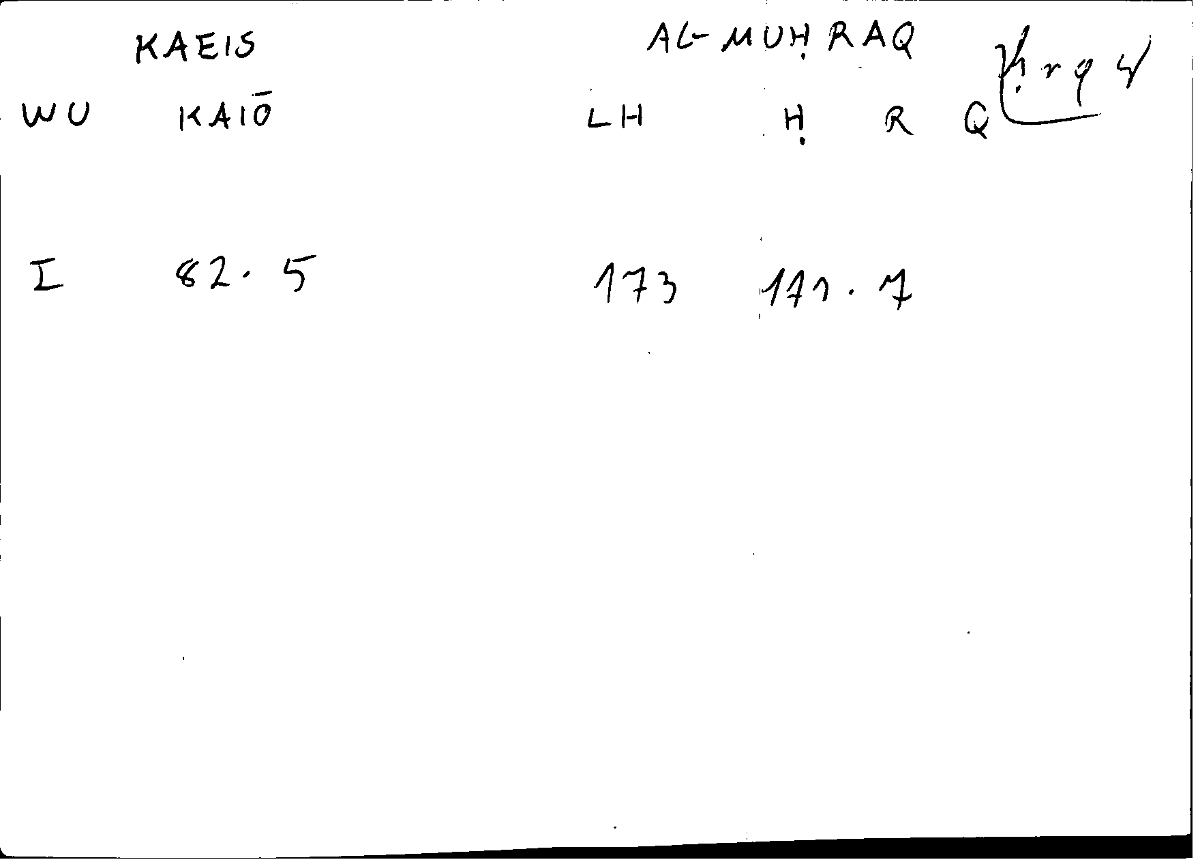 KAEIS AL-MUḤRAQ ḥrq
WU KAIŌ LH Ḥ R Q
I 82.5 173 171.7